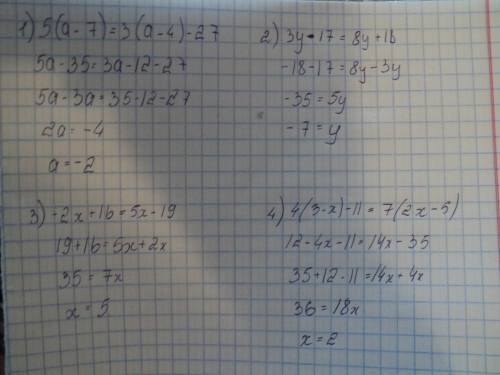 1) 5(a-7)=3(a-4)-27
5a-35=3a-12-27
5a-3a=35-12-27
2a=-4
a=-2
2) 3y-17=8y+18
-18-17=8y-3y
-35=5y
-7=y
3) -2x+16=5x-19
19+16=5x+2x
35=7x
x=5
4) 4(3-x)-11=7(2x-5)
12-4x-11=14x-35
35+12-11=14x+4x
36=18x
x=2